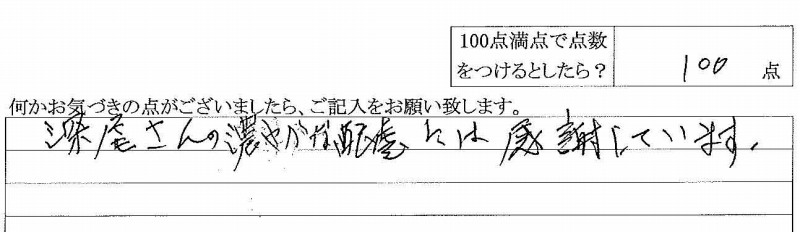 100点満点で点数
をつけるとしたら？ 100 点
何かお気づきの点がございましたら、ご記入をお願い致します。
深尾さんの濃やかな配慮には感謝しています。